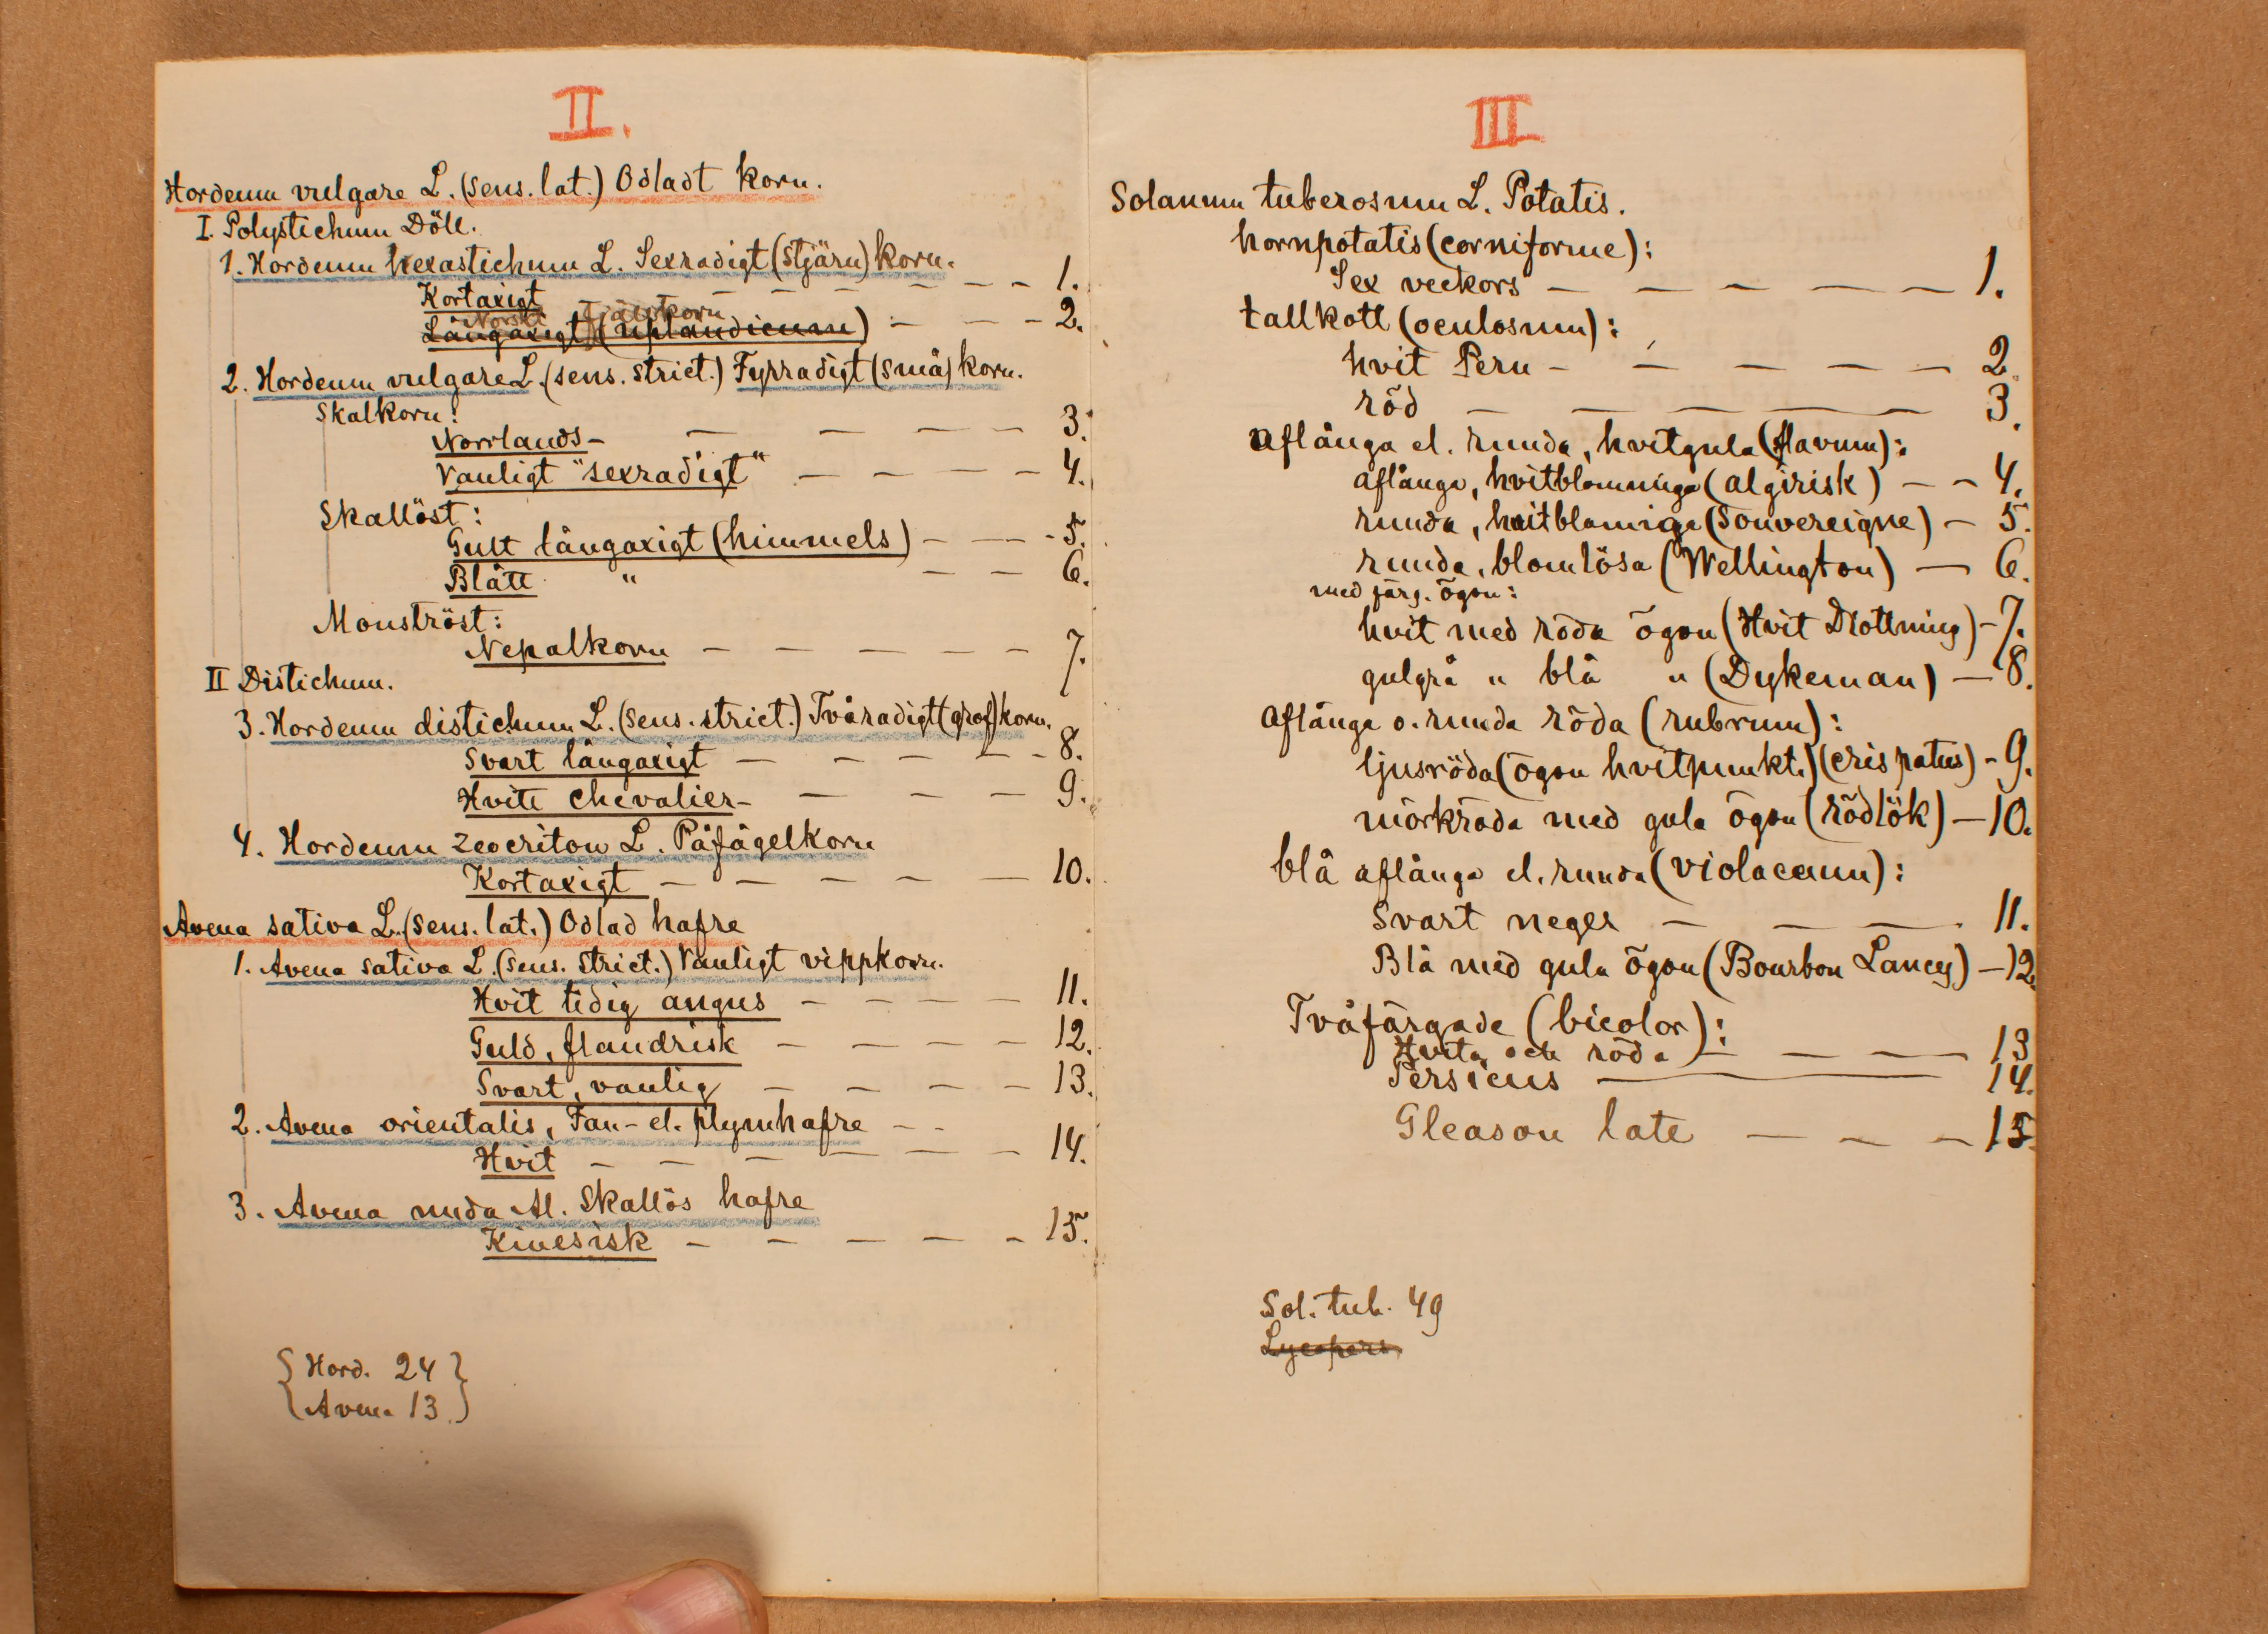 II.
Hordeum vulgare L. (sens. lat.) Odladt korn.
I. Polystichum Döll.
1. Hordeum hexastichum L. Sexradigt (stjärn) korn.
Kortaxigt - - - - - - 1.
Norskt Fjällkorn
Långaxigt (uplandicum) - - - 2.
2. Hordeum vulgare L. (sens. strict.) Fyrradigt (små) korn.
Skalkorn:
Norrlands- - - - - 3.
Vanligt "sexradigt" - - - - 4.
Skallöst:
Gult långaxigt (himmels) - - - 5.
Blått " - - 6.
Monströst:
Nepalkorn - - - - - 7.
II Distichum.
3. Hordeum distichum L. (sens. strict.) Tvåradigt (grof) korn.
Svart långaxigt - - - - - 8.
Hvitt Chevalier- - - - 9.
4. Hordeum zeocriton L. Påfågelkorn
Kortaxigt - - - - - 10.
Avena sativa L. (sens. lat.) Odlad hafre
1. Avena sativa L. (sens. strict.) Vanligt vippkorn.
Hvit tidig angus - - - - 11.
Guld, flandrisk - - - - 12.
Svart, vanlig - - - - 13.
2. Avena orientalis, Fan- el. plymhafre - -
Hvit - - - - - - 14.
3. Avena nuda Al. Skallös hafre
Kinesisk - - - - - 15.
{ Hord. 24 }
{ Avena 13. }
III
Solanum tuberosum L. Potatis.
hornpotatis (corniforme):
Sex veckors - - - - - 1.
tallkott (oculosum):
hvit Peru - - - - - 2.
röd - - - - 3.
aflånga el. runda, hvitgula (flavum):
aflånga, hvitblommiga (algirisk) - - 4.
runda, hvitblomiga (Souvereigne) - 5.
runda, blomlösa (Wellington) - 6.
med färg. ögon:
hvit med röda ögon (Hvit Drottning) - 7.
gulgrå " blå " (Dykeman) - 8.
aflånga o. runda röda (rubrum):
ljusröda (ögon hvitpunkt.) (crispatus) - 9.
mörkröda med gula ögon (rödlök) - 10.
blå aflånga el. runda (violaceum):
Svart neger - - - 11.
Blå med gula ögon (Bourbon Lancy) - 12.
Tvåfärgade (bicolor):
Hvita och röda - - - - 13
Persicus - - 14.
Gleason late - - - 15.
Sol. tub. 49
Lycopers.